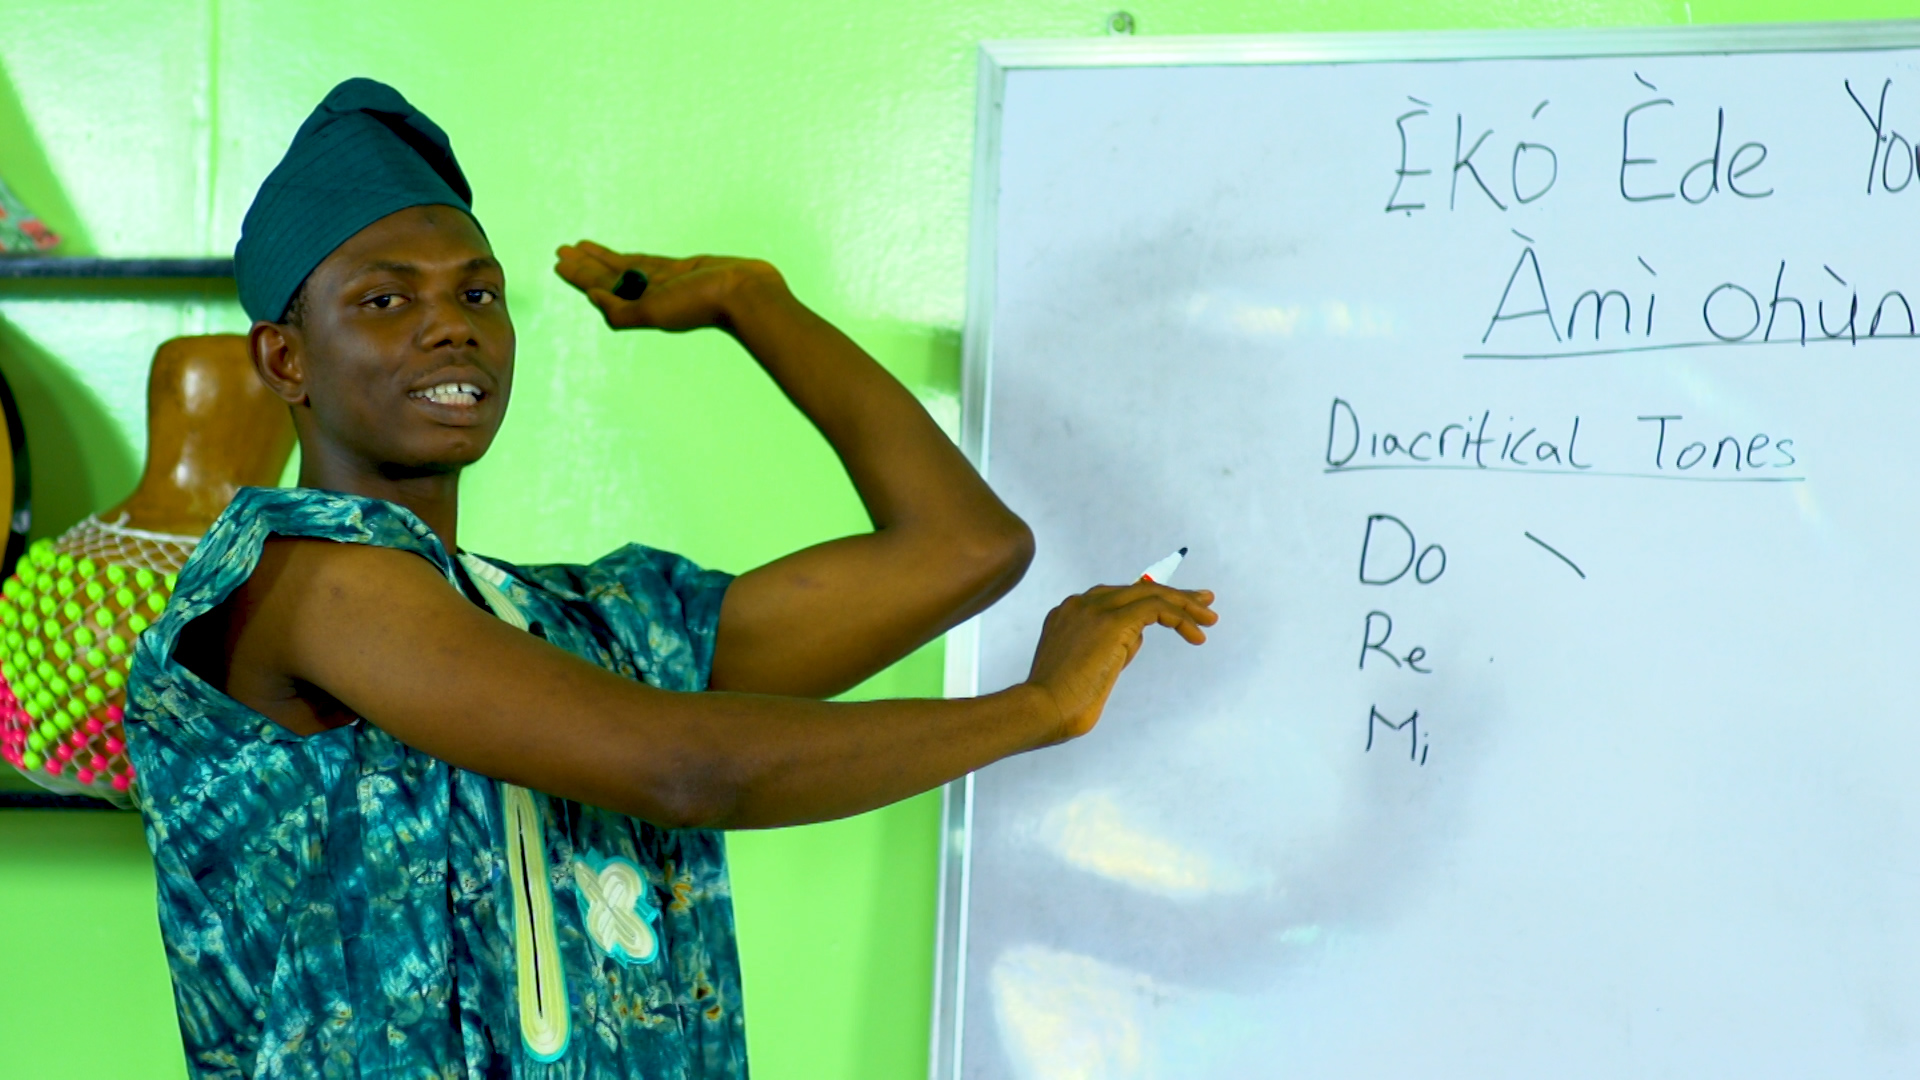 Ẹ̀kọ́ Ède You
Àmì ohùn
Diacritical Tones
Do \
Re
Mi